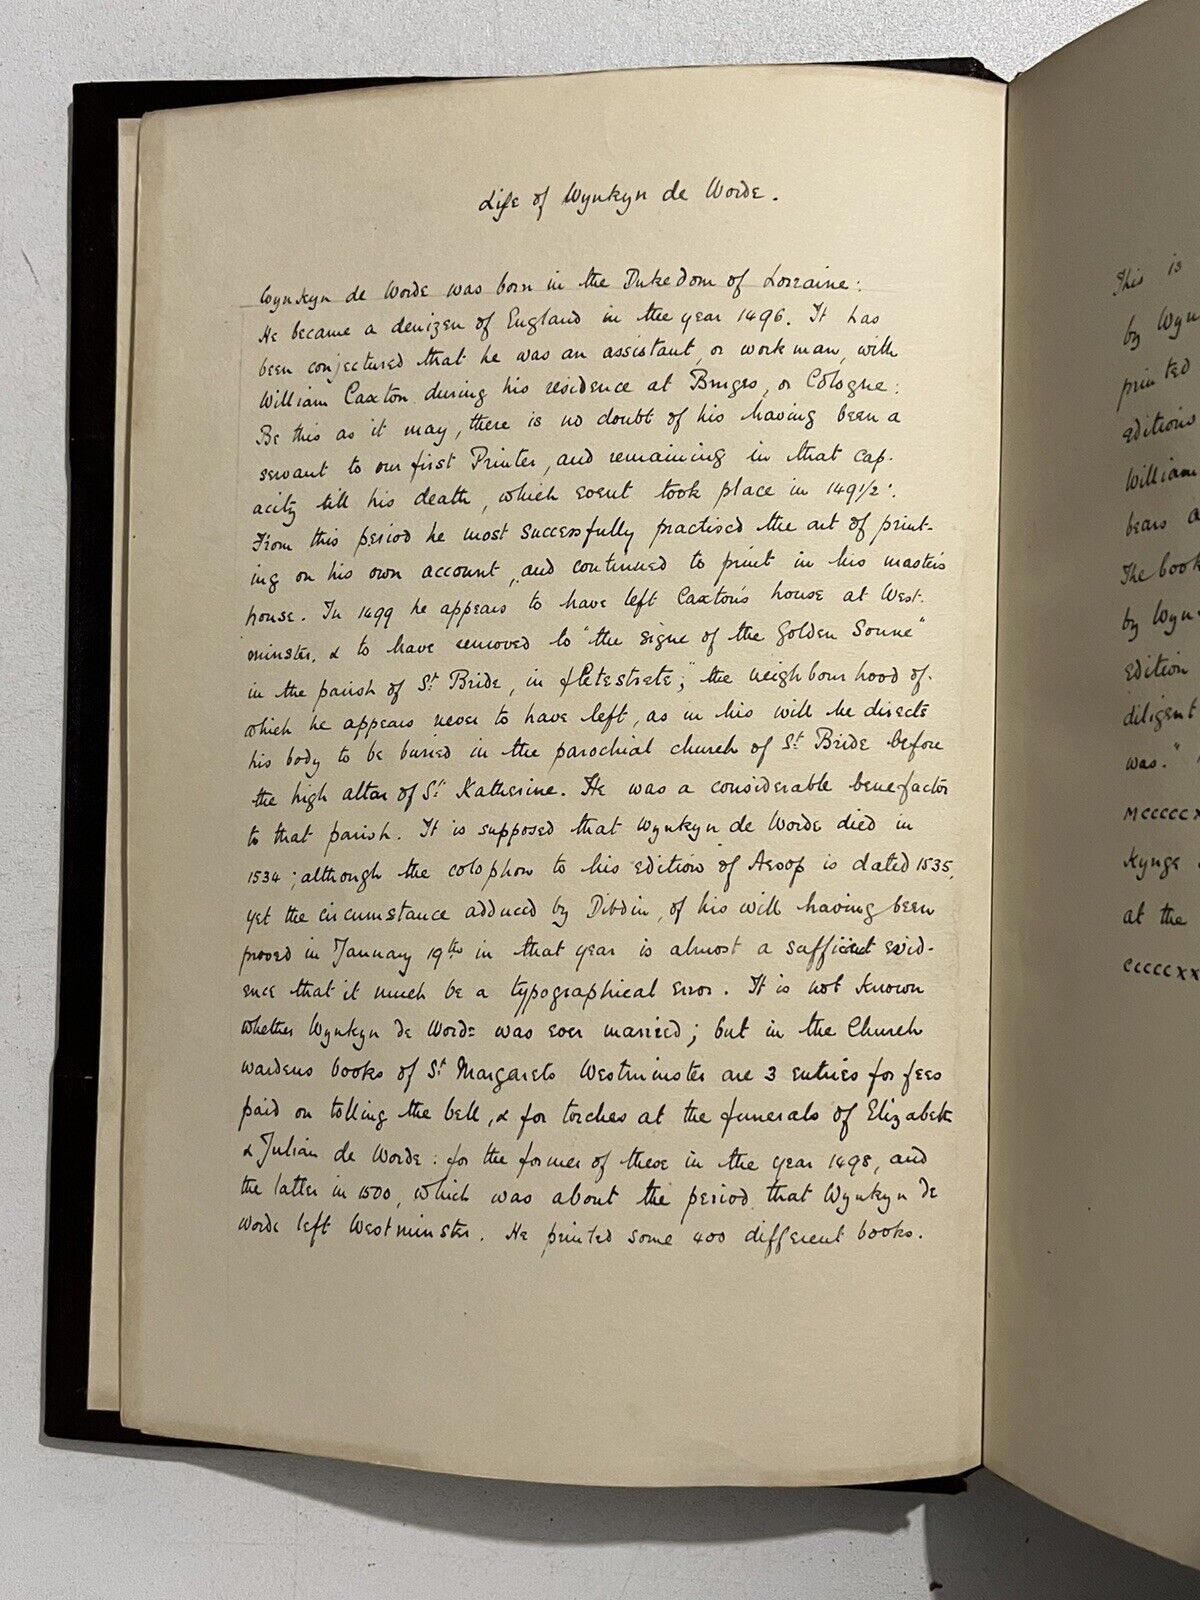 Life of Wynkyn de Worde.
Wynkyn de Worde was born in the Dukedom of Lorraine:
He became a denizen of England in the year 1496. It has
been conjectured that he was an assistant, or workman, with
William Caxton during his residence at Bruges, or Cologne:
Be this as it may, there is no doubt of his having been a
servant to our first Printer, and remaining in that cap-
acity till his death, which event took place in 1491/2:
From this period he most successfully practised the art of print-
ing on his own account, and continued to print in his master's
house. In 1499 he appears to have left Caxton's house at West-
minster, & to have removed to "the signe of the Golden Sonne"
in the parish of St Bride, in fletestrete; "the neighbourhood of
which he appears never to have left, as in his will he directs
his body to be buried in the parochial church of St Bride before
the high altar of St Katherine. He was a considerable benefactor
to that parish. It is supposed that Wynkyn de Worde died in
1534; although the colophon to his edition of Aesop is dated 1535,
yet the circumstance adduced by Dibdin, of his will having been
proved in January 19th in that year is almost a sufficient evid-
ence that it much be a typographical error. It is not known
whether Wynkyn de Worde was ever married; but in the Church
wardens books of St Margarets Westminster are 3 entries for fees
paid on tolling the bell, & for torches at the funerals of Elizabeth
& Julian de Worde: for the former of these in the year 1498, and
the latter in 1500, which was about the period that Wynkyn de
Worde left Westminster. He printed some 400 different books.
This is
by Wyn
printed
editions
William
bears
The book
by Wyn
edition
diligent
was."
MCCCCCX
Kynge
at the
CCCCCXX